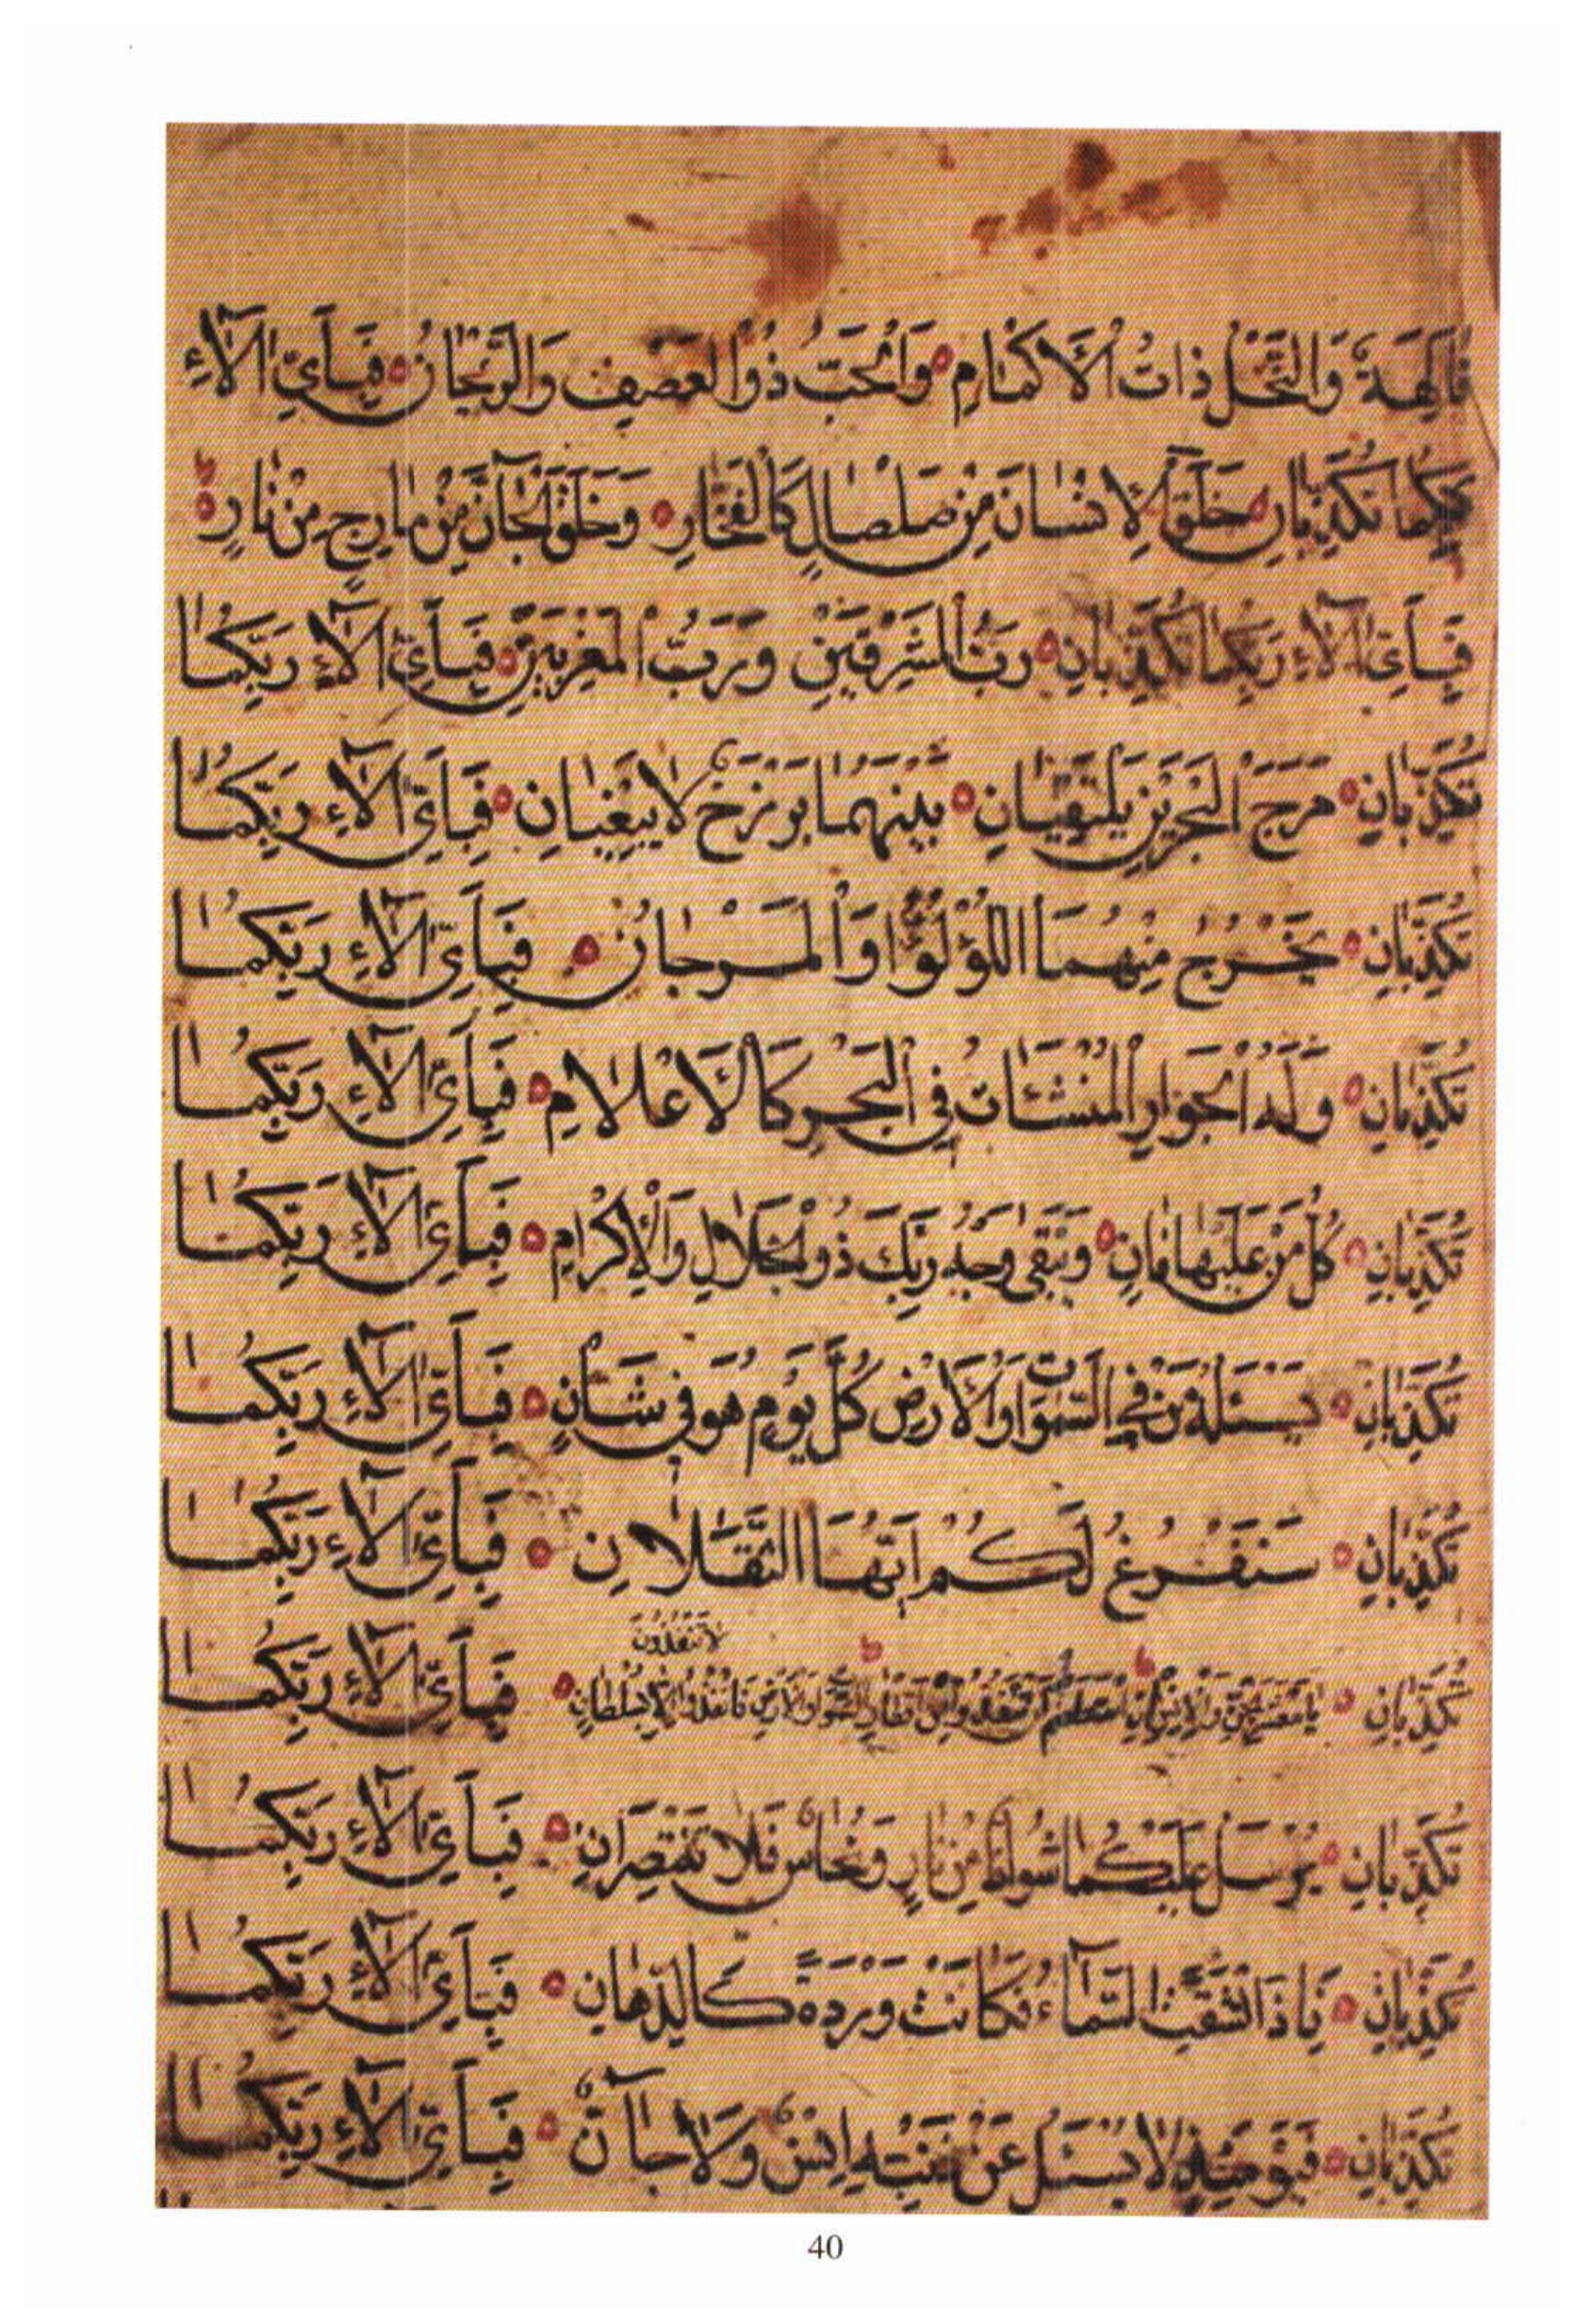 فَاكِهَةٌ وَالنَّخْلُ ذَاتُ الْأَكْمَامِ ۝ وَالْحَبُّ ذُو الْعَصْفِ وَالرَّيْحَانُ ۝ فَبِأَيِّ اٰلَآءِ
رَبِّكُمَا تُكَذِّبَانِ ۝ خَلَقَ الْإِنْسَانَ مِنْ صَلْصَالٍ كَالْفَخَّارِ ۝ وَخَلَقَ الْجَآنَّ مِنْ مَارِجٍ مِنْ نَارٍ ۝
فَبِأَيِّ اٰلَآءِ رَبِّكُمَا تُكَذِّبَانِ ۝ رَبُّ الْمَشْرِقَيْنِ وَرَبُّ الْمَغْرِبَيْنِ ۝ فَبِأَيِّ اٰلَآءِ رَبِّكُمَا
تُكَذِّبَانِ ۝ مَرَجَ الْبَحْرَيْنِ يَلْتَقِيَانِ ۝ بَيْنَهُمَا بَرْزَخٌ لَا يَبْغِيَانِ ۝ فَبِأَيِّ اٰلَآءِ رَبِّكُمَا
تُكَذِّبَانِ ۝ يَخْرُجُ مِنْهُمَا اللُّؤْلُؤُا وَالْمَرْجَانُ ۝ فَبِأَيِّ اٰلَآءِ رَبِّكُمَا
تُكَذِّبَانِ ۝ وَلَهُ الْجَوَارِ الْمُنْشَئَاتُ فِي الْبَحْرِ كَالْأَعْلَامِ ۝ فَبِأَيِّ اٰلَآءِ رَبِّكُمَا
تُكَذِّبَانِ ۝ كُلُّ مَنْ عَلَيْهَا فَانٍ ۝ وَيَبْقَى وَجْهُ رَبِّكَ ذُو الْجَلَالِ وَالْإِكْرَامِ ۝ فَبِأَيِّ اٰلَآءِ رَبِّكُمَا
تُكَذِّبَانِ ۝ يَسْئَلُهُ مَنْ فِي السَّمٰوَاتِ وَالْأَرْضِ كُلَّ يَوْمٍ هُوَ فِي شَأْنٍ ۝ فَبِأَيِّ اٰلَآءِ رَبِّكُمَا
تُكَذِّبَانِ ۝ سَنَفْرُغُ لَكُمْ أَيُّهَا الثَّقَلَانِ ۝ فَبِأَيِّ اٰلَآءِ رَبِّكُمَا
لَا تَنْفُذُونَ
تُكَذِّبَانِ ۝ يَا مَعْشَرَ الْجِنِّ وَالْإِنْسِ إِنِ اسْتَطَعْتُمْ أَنْ تَنْفُذُوا مِنْ أَقْطَارِ السَّمٰوَاتِ وَالْأَرْضِ فَانْفُذُوا إِلَّا بِسُلْطَانٍ ۝ فَبِأَيِّ اٰلَآءِ رَبِّكُمَا
تُكَذِّبَانِ ۝ يُرْسَلُ عَلَيْكُمَا شُوَاظٌ مِنْ نَارٍ وَنُحَاسٌ فَلَا تَنْتَصِرَانِ ۝ فَبِأَيِّ اٰلَآءِ رَبِّكُمَا
تُكَذِّبَانِ ۝ فَإِذَا انْشَقَّتِ السَّمَآءُ فَكَانَتْ وَرْدَةً كَالدِّهَانِ ۝ فَبِأَيِّ اٰلَآءِ رَبِّكُمَا
تُكَذِّبَانِ ۝ فَيَوْمَئِذٍ لَا يُسْئَلُ عَنْ ذَنْبِهِ إِنْسٌ وَلَا جَآنٌّ ۝ فَبِأَيِّ اٰلَآءِ رَبِّكُمَا
40